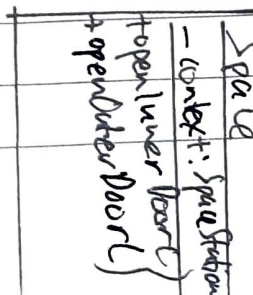 Space
- context: SpaceStation
+openInnerDoor()
+openOuterDoor()